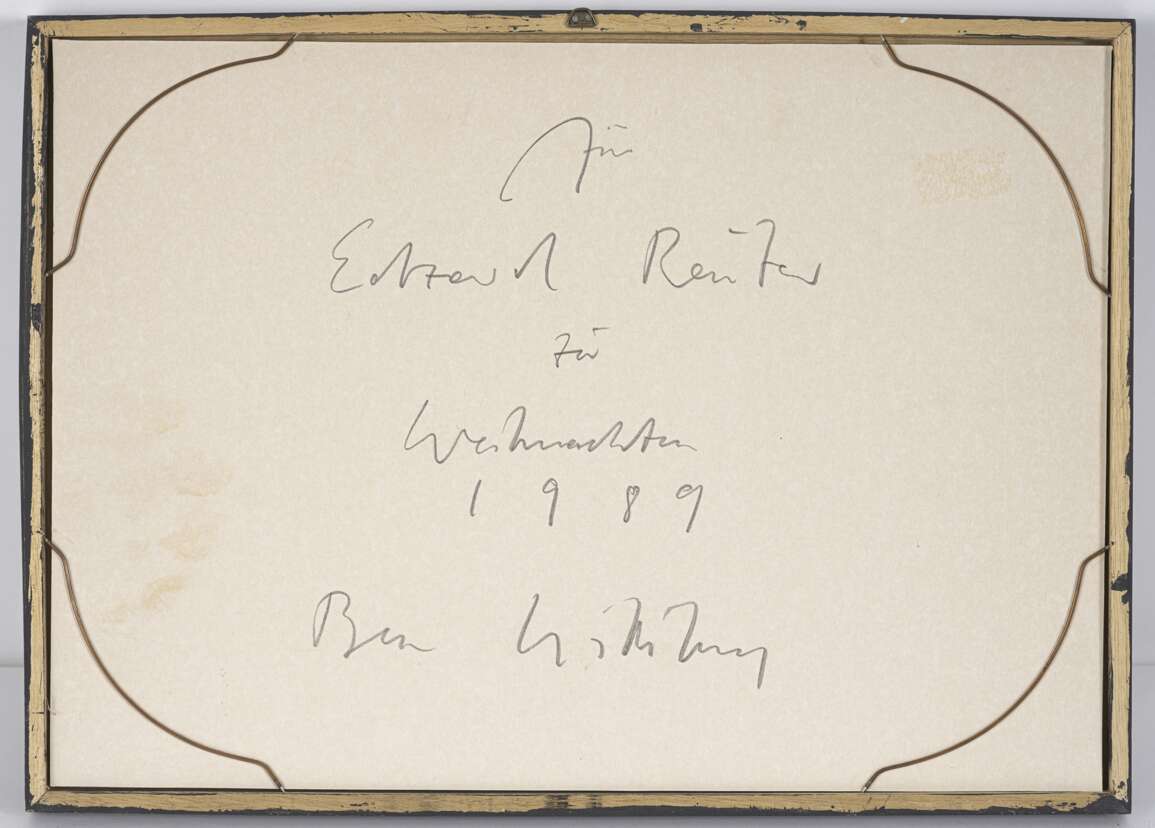 Für
Edzard Reuter
zu
Weihnachten
1989
Ben Willikens